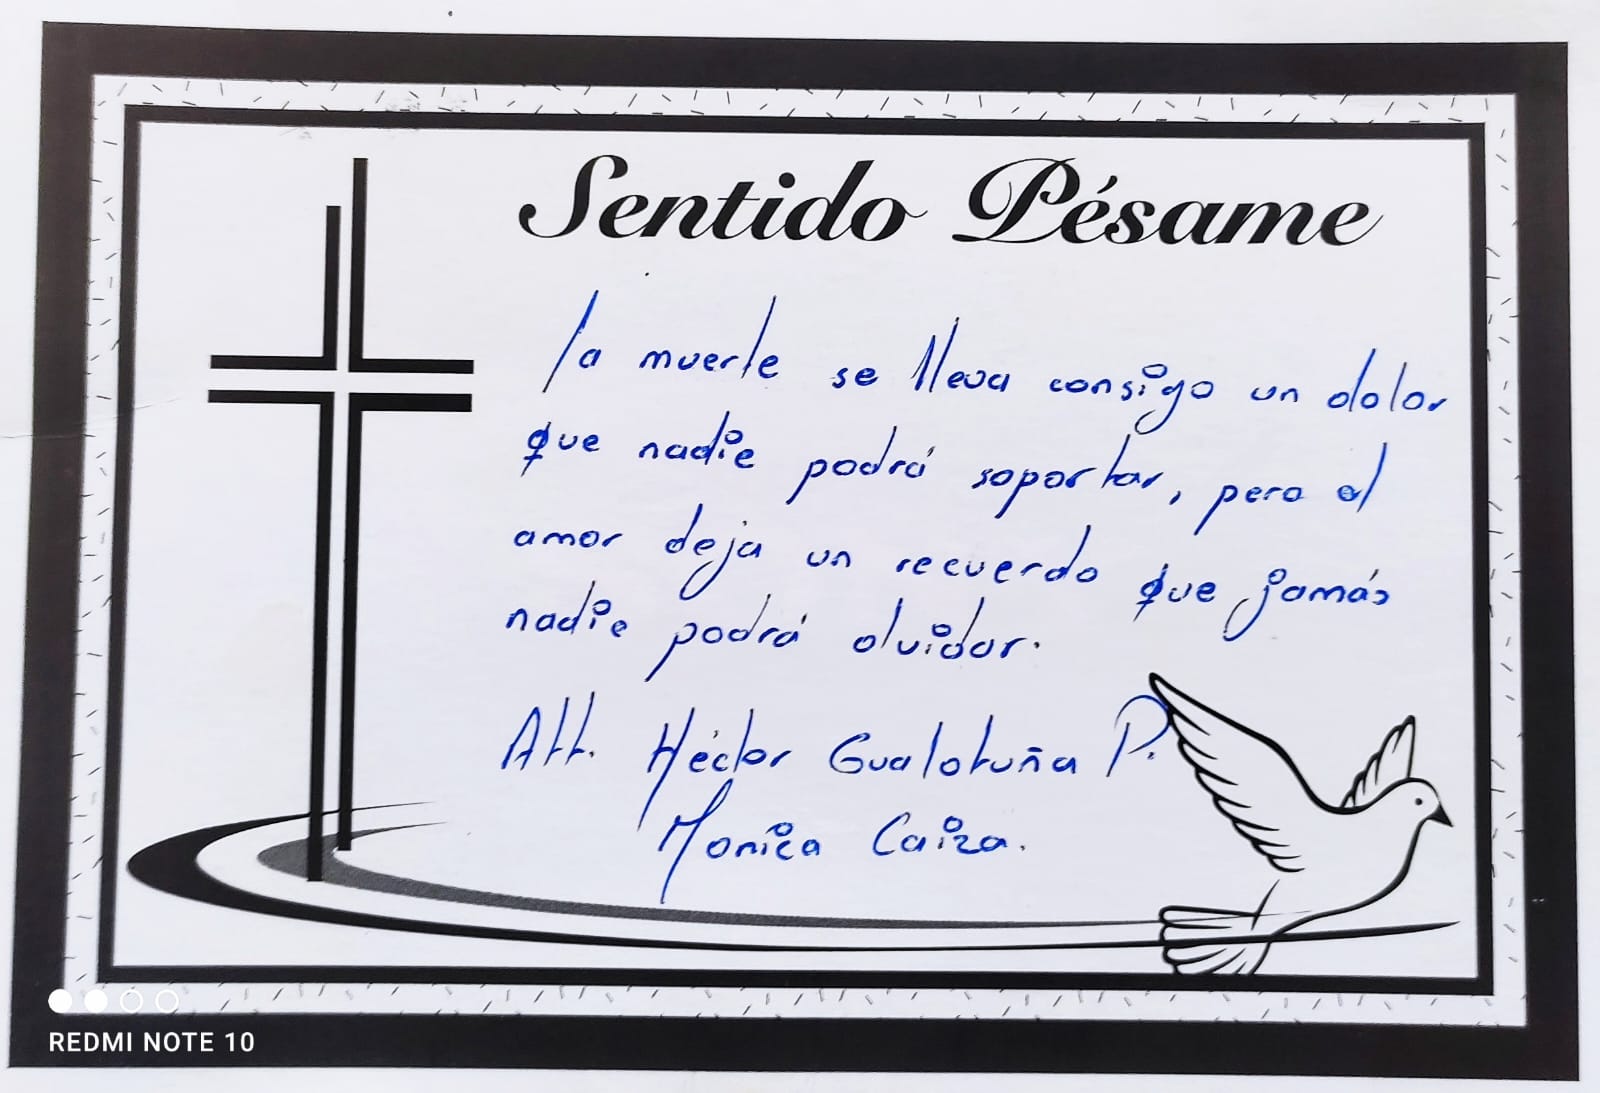 Sentido Pésame
la muerte se lleva consigo un dolor
que nadie podrá soportar, pero el
amor deja un recuerdo que jamás
nadie podrá olvidar.
Att. Héctor Gualotuña P.
Monica Caiza.
REDMI NOTE 10